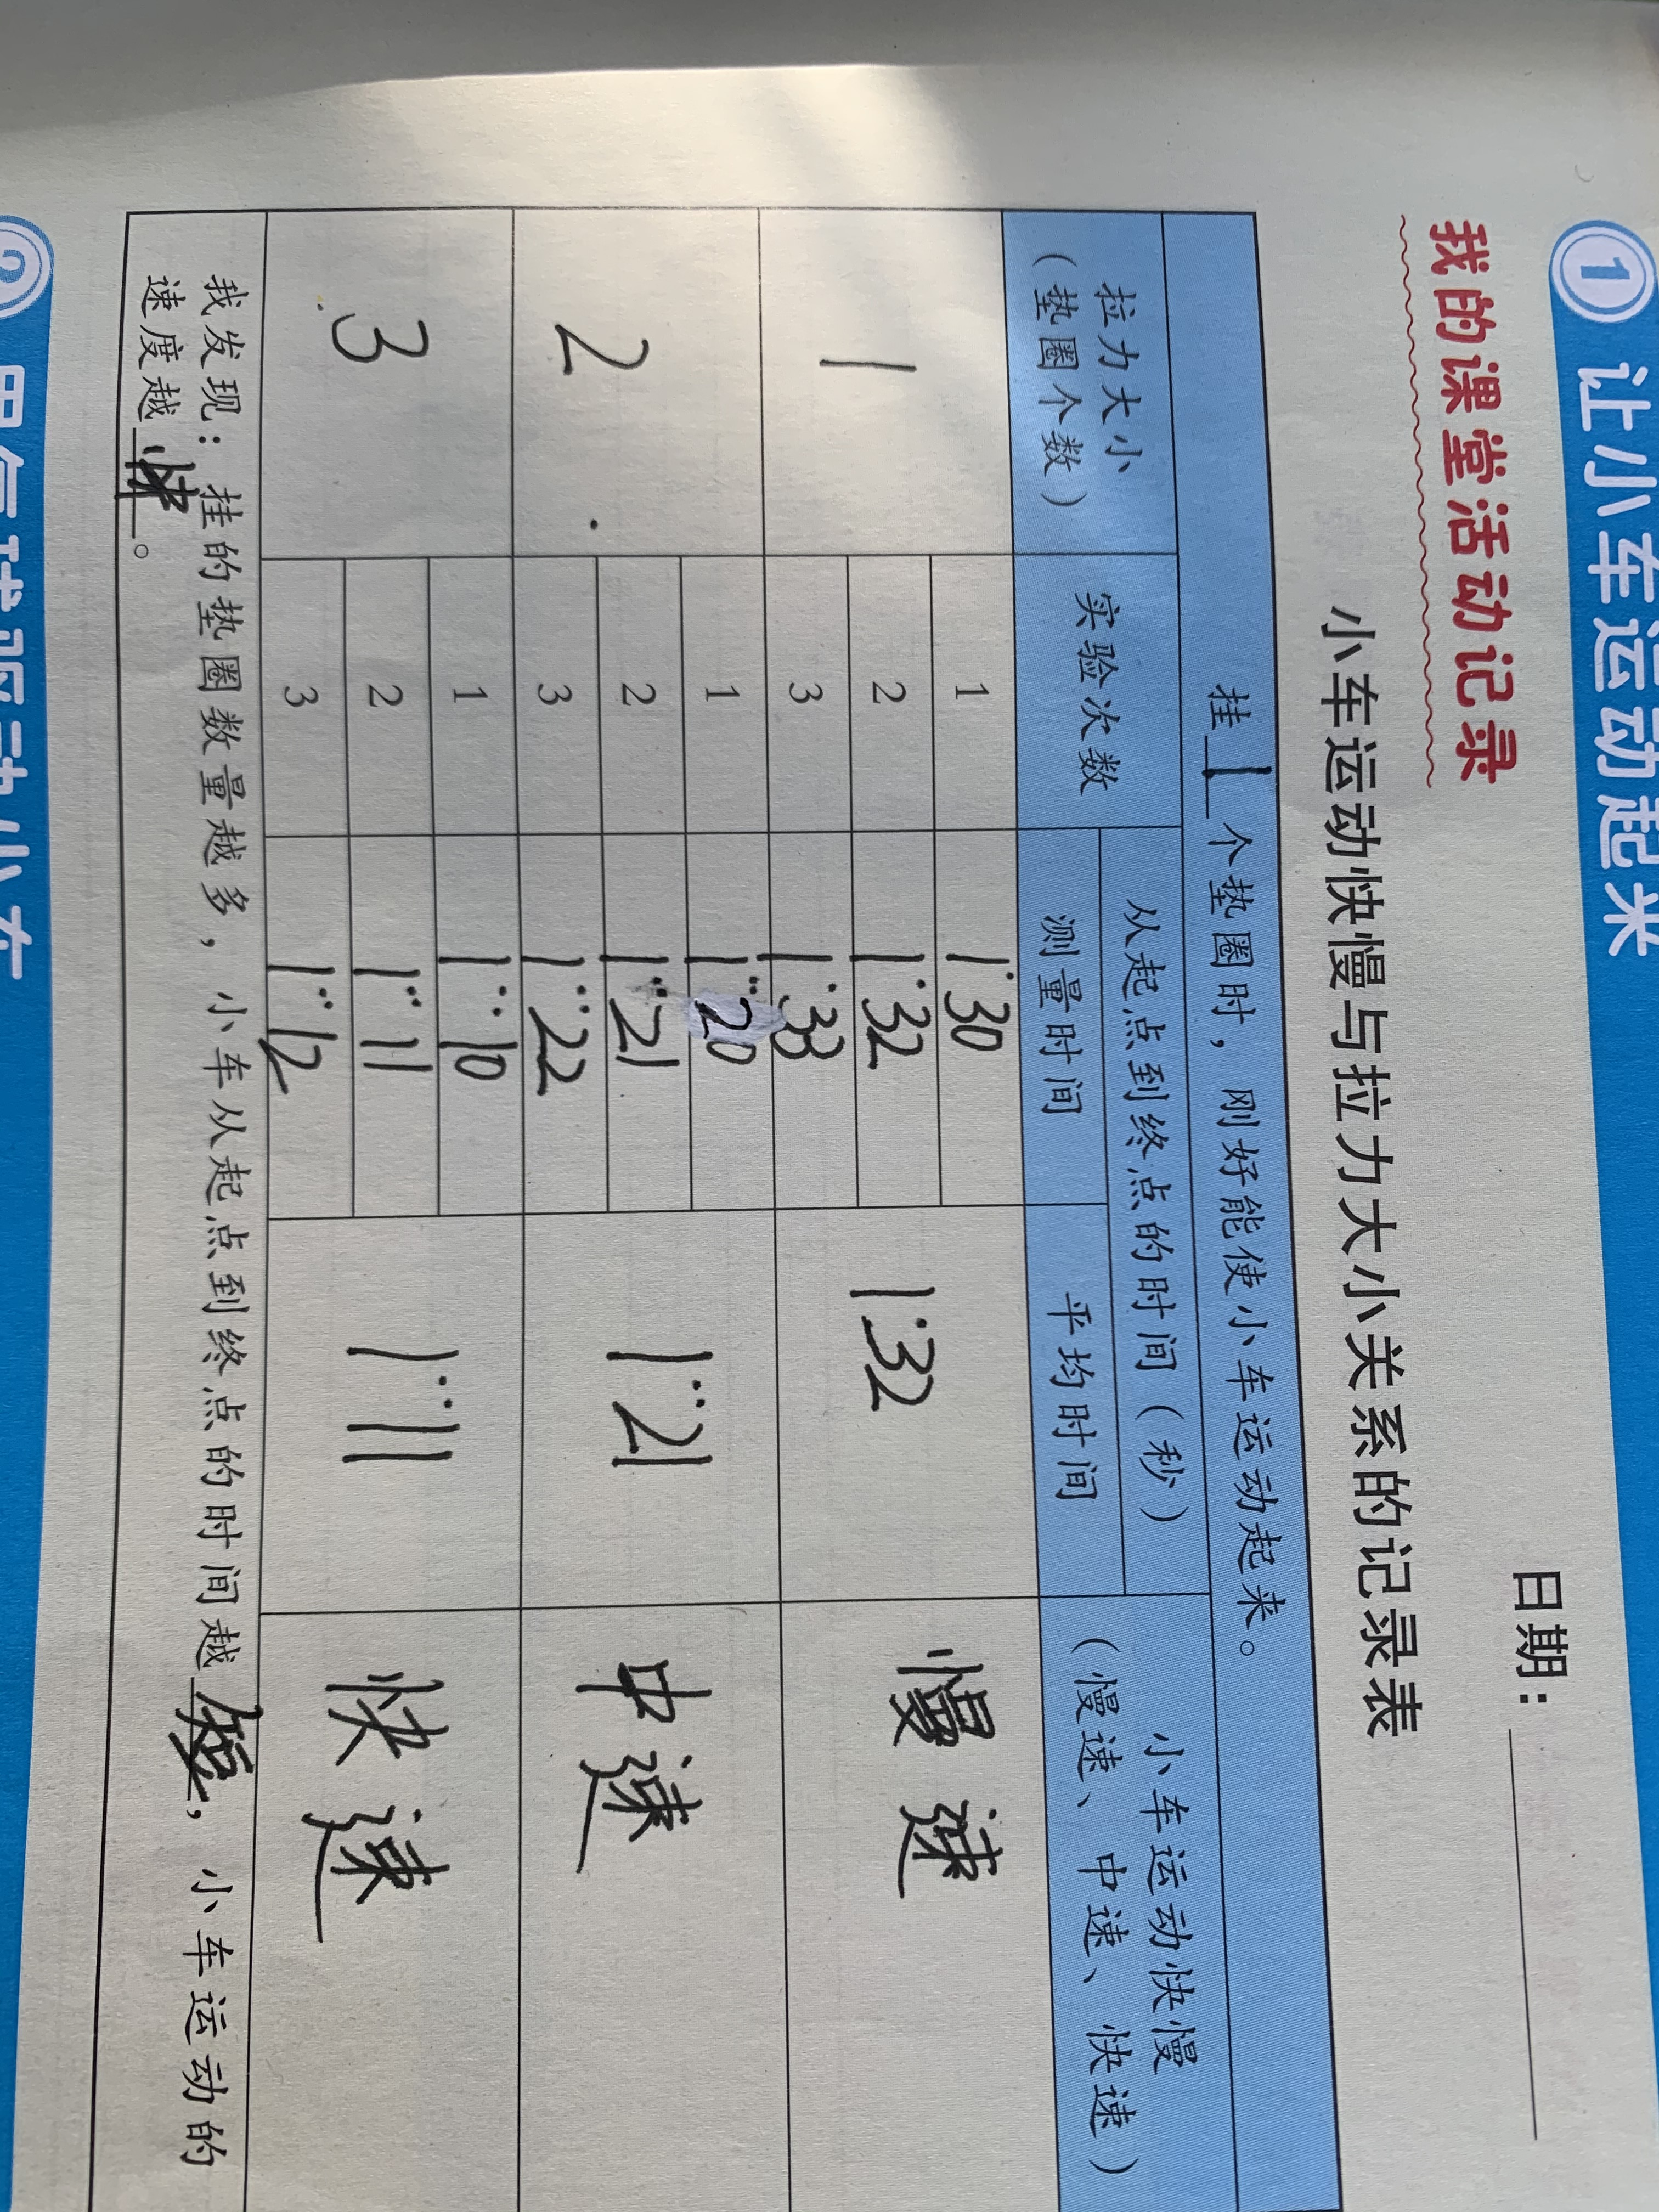 1 让小车运动起来
我的课堂活动记录
日期：
小车运动快慢与拉力大小关系的记录表
挂 1 个垫圈时，刚好能使小车运动起来。
拉力大小（垫圈个数） 实验次数 从起点到终点的时间（秒） 小车运动快慢（慢速、中速、快速）
测量时间 平均时间
1 1 1:30 1:32 慢速
2 1:32
3 1:33
2 1 1:20 1:21 中速
2 1:21
3 1:22
3 1 1:10 1:11 快速
2 1:11
3 1:12
我发现：挂的垫圈数量越多，小车从起点到终点的时间越短，小车运动的
速度越快。
2